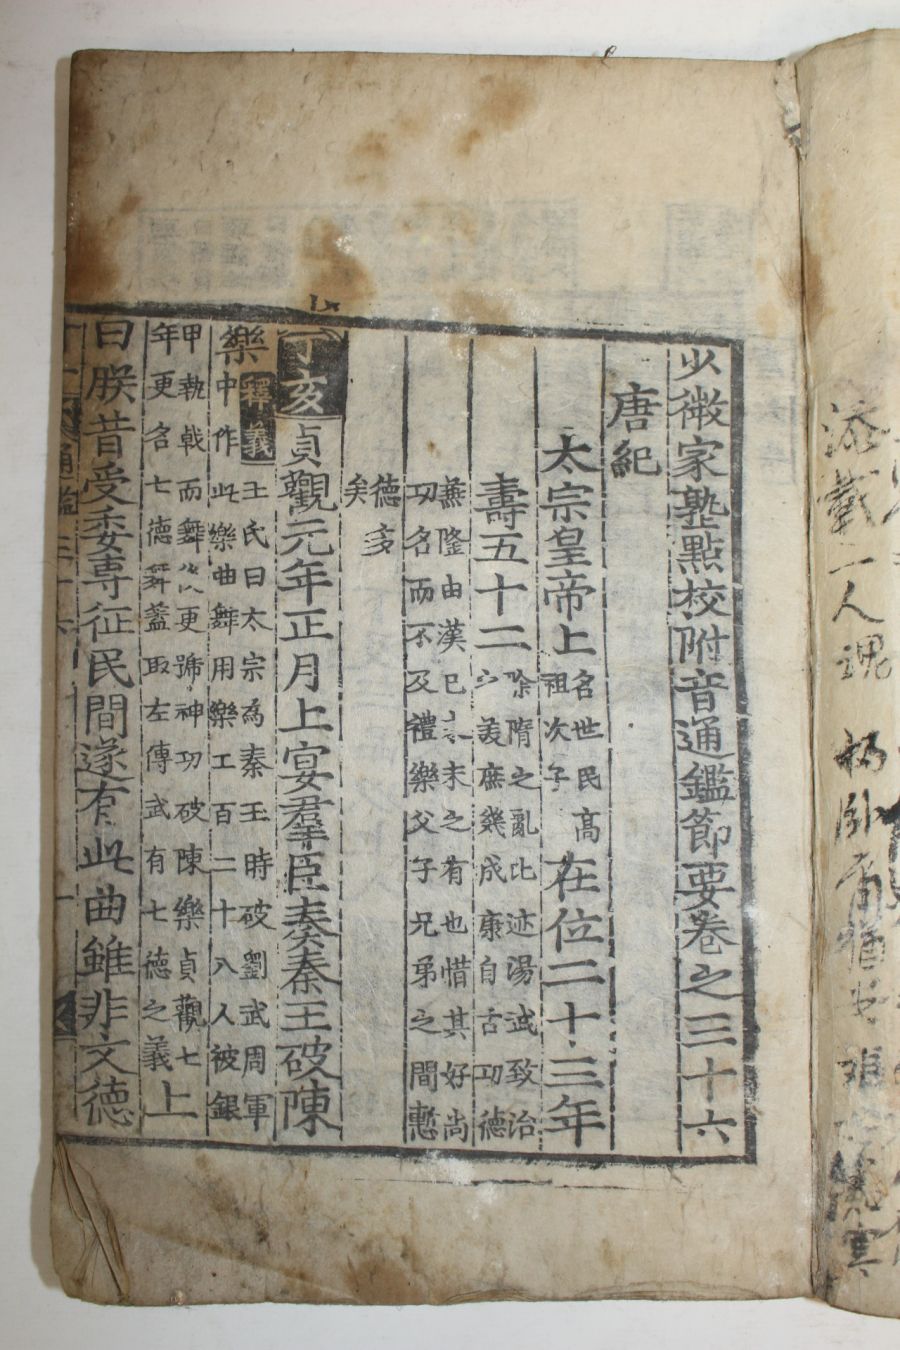 少微家塾點校附音通鑑節要卷之三十六
唐紀
太宗皇帝上名世民高祖次子在位二十三年
壽五十二除隋之亂比迹湯武致治之美庶幾成康自古功德
兼隆由漢已來未之有也惜其好尚功名而不及禮樂父子兄弟之間慙
德多矣
丁亥貞觀元年正月上宴羣臣奏秦王破陳
樂釋義王氏曰太宗為秦王時破劉武周軍中作此樂曲舞用樂工百二十八人被銀
甲執戟而舞後更號神功破陳樂貞觀七年更名七德舞蓋取左傳武有七德之義上
曰朕昔受委專征民間遂有此曲雖非文德
通鑑三十六
一
添載一人魂